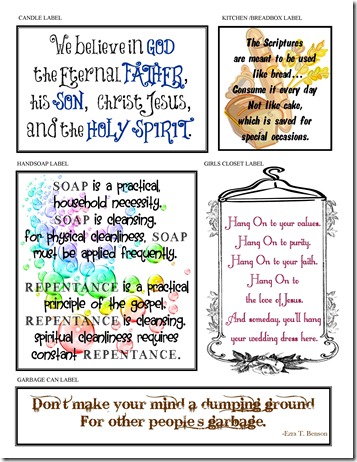 CANDLE LABEL
We believe in GOD
the Eternal FATHER,
his SON, Christ Jesus,
and the HOLY SPIRIT.
KITCHEN /BREADBOX LABEL
The Scriptures
are meant to be used
like bread...
Consume it every day
Not like cake,
which is saved for
special occasions.
HANDSOAP LABEL
SOAP is a practical,
household necessity.
SOAP is cleansing.
for physical cleanliness, SOAP
must be applied frequently.
REPENTANCE is a practical
principle of the gospel.
REPENTANCE is cleansing.
spiritual cleanliness requires
constant REPENTANCE.
GIRLS CLOSET LABEL
Hang On to your values.
Hang On to purity.
Hang On to your faith.
Hang On to
the love of Jesus.
And someday, you'll hang
your wedding dress here.
GARBAGE CAN LABEL
Don't make your mind a dumping ground
For other people's garbage.
-Ezra T. Benson